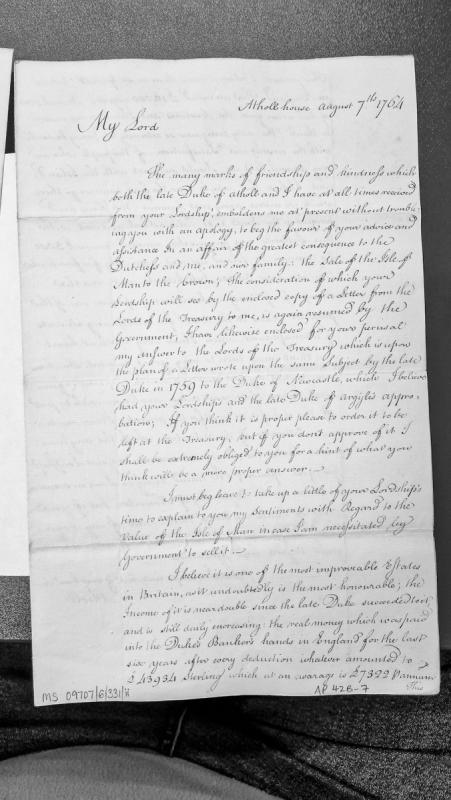 Atholl house august 7th 1764
My Lord
The many marks of friendship and kindness which
both the late Duke of atholl and I have at all times received
from your Lordship, emboldens me at present without troubl-
ing you with an apology, to beg the favour of your advice and
assistance in an affair of the greatest consequence to the
Dutchess and me, and our family: the Sale of the Isle of
Man to the Crown; the consideration of which your
Lordship will see by the enclosed copy of a Letter from the
Lords of the Treasury to me, is again resumed by the
Government, I have likewise enclosed for your perusal
my answer to the Lords of the Treasury which is upon
the plan of a Letter wrote upon the same Subject by the late
Duke in 1759 to the Duke of Newcastle, which I believe
had your Lordships and the late Duke of argyle's appro-
bation; If you think it is proper please to order it to be
left at the Treasury, but if you don't approve of it I
shall be extremely obliged to you for a hint of what you
think will be a more proper answer. —
I must beg leave to take up a little of your Lordship's
time to explain to you my Sentiments with Regard to the
Value of the Isle of Man in case I am necessitated by
Government to sell it. —
I believe it is one of the most improveable Estates
in Britain, as it undoubtedly is the most honourable; the
Income of it is near double since the late Duke succeeded to it
and is still daily increasing: the real money which was paid
into the Dukes Bankers hands in England for the last
six years after every deduction whatever amounted to
£43934 Sterling which at an avarage is £7322 P annum
This
MS 09707/6/331/8
AP 42B-7